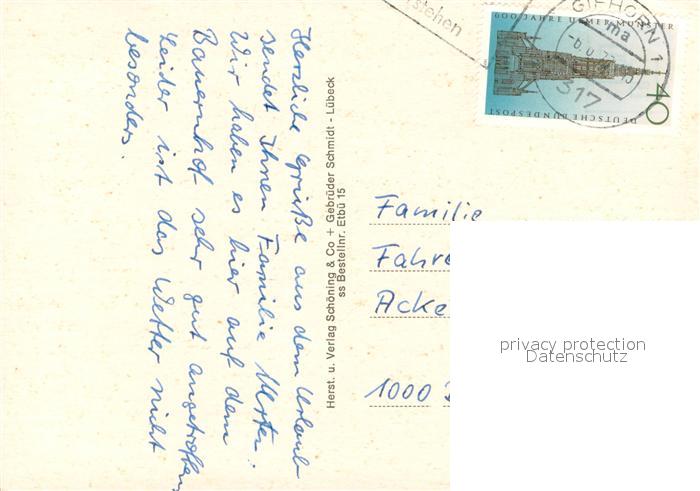 Herzliche Grüße aus dem Urlaub
sendet Ihnen Familie
Wir haben es hier auf dem
Bauernhof sehr gut angetroffen
Leider ist das Wetter nicht
besonders.
Herst. u. Verlag Schöning & Co + Gebrüder Schmidt - Lübeck
ss Bestellnr. Etbü 15
stehen
GIFHORN 1
ma
317
600 JAHRE ULMER MÜNSTER
40
DEUTSCHE BUNDESPOST
Familie
Fahre
Acke
1000
privacy protection
Datenschutz